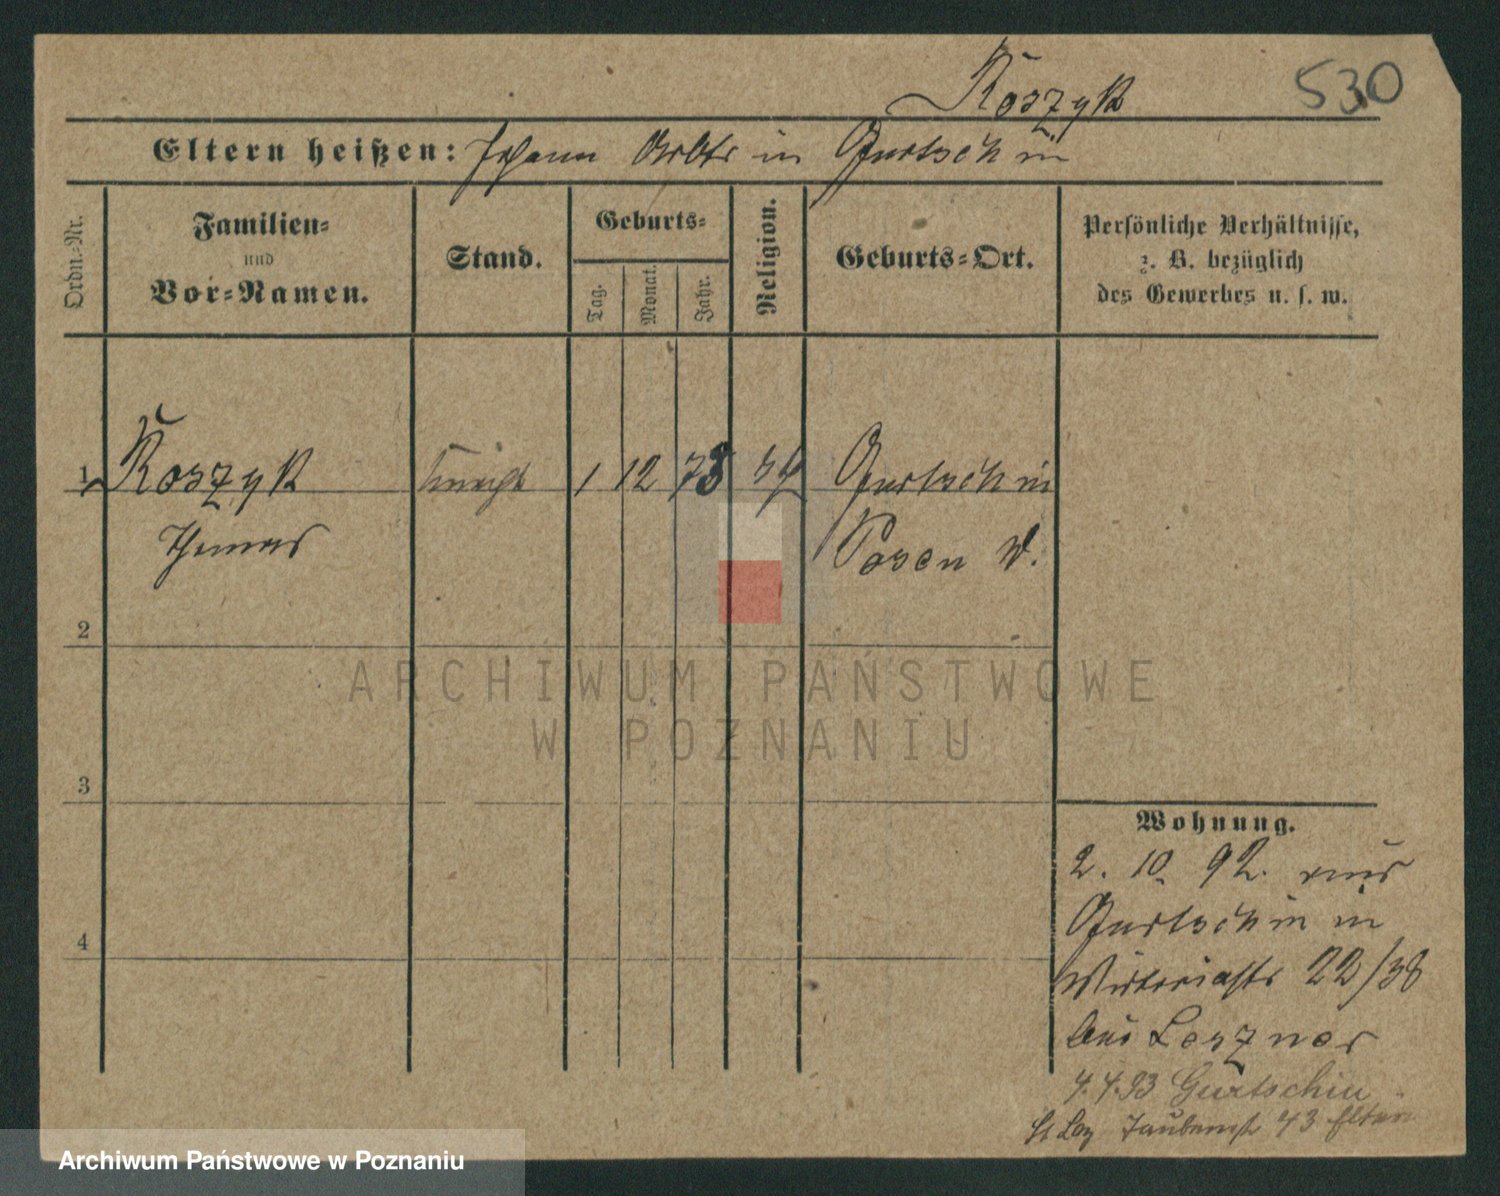 Koszyk 530
Eltern heißen: Johann Arbtr in Gurtschin
Ordn.-Nr.
Familien-
und
Vor-Namen.
Stand.
Geburts-
Tag.
Monat.
Jahr.
Religion.
Geburts-Ort.
Persönliche Verhältnisse,
z. B. bezüglich
des Gewerbes u. s. w.
1 Koszyk Knecht 1 12 73 Gurtschin
Thomas Posen W.
2
3
4
Wohnung.
2. 10. 92. aus
Gurtschin in
22/38
bei Leszner
4.4.93 Gurtschin
43 Eltern
ARCHIWUM PAŃSTWOWE
W POZNANIU
Archiwum Państwowe w Poznaniu